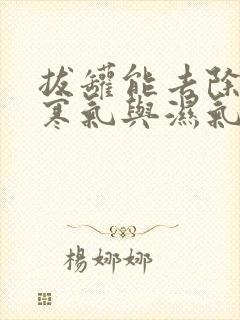 拔罐能去除
寒氣與濕氣
楊娜娜